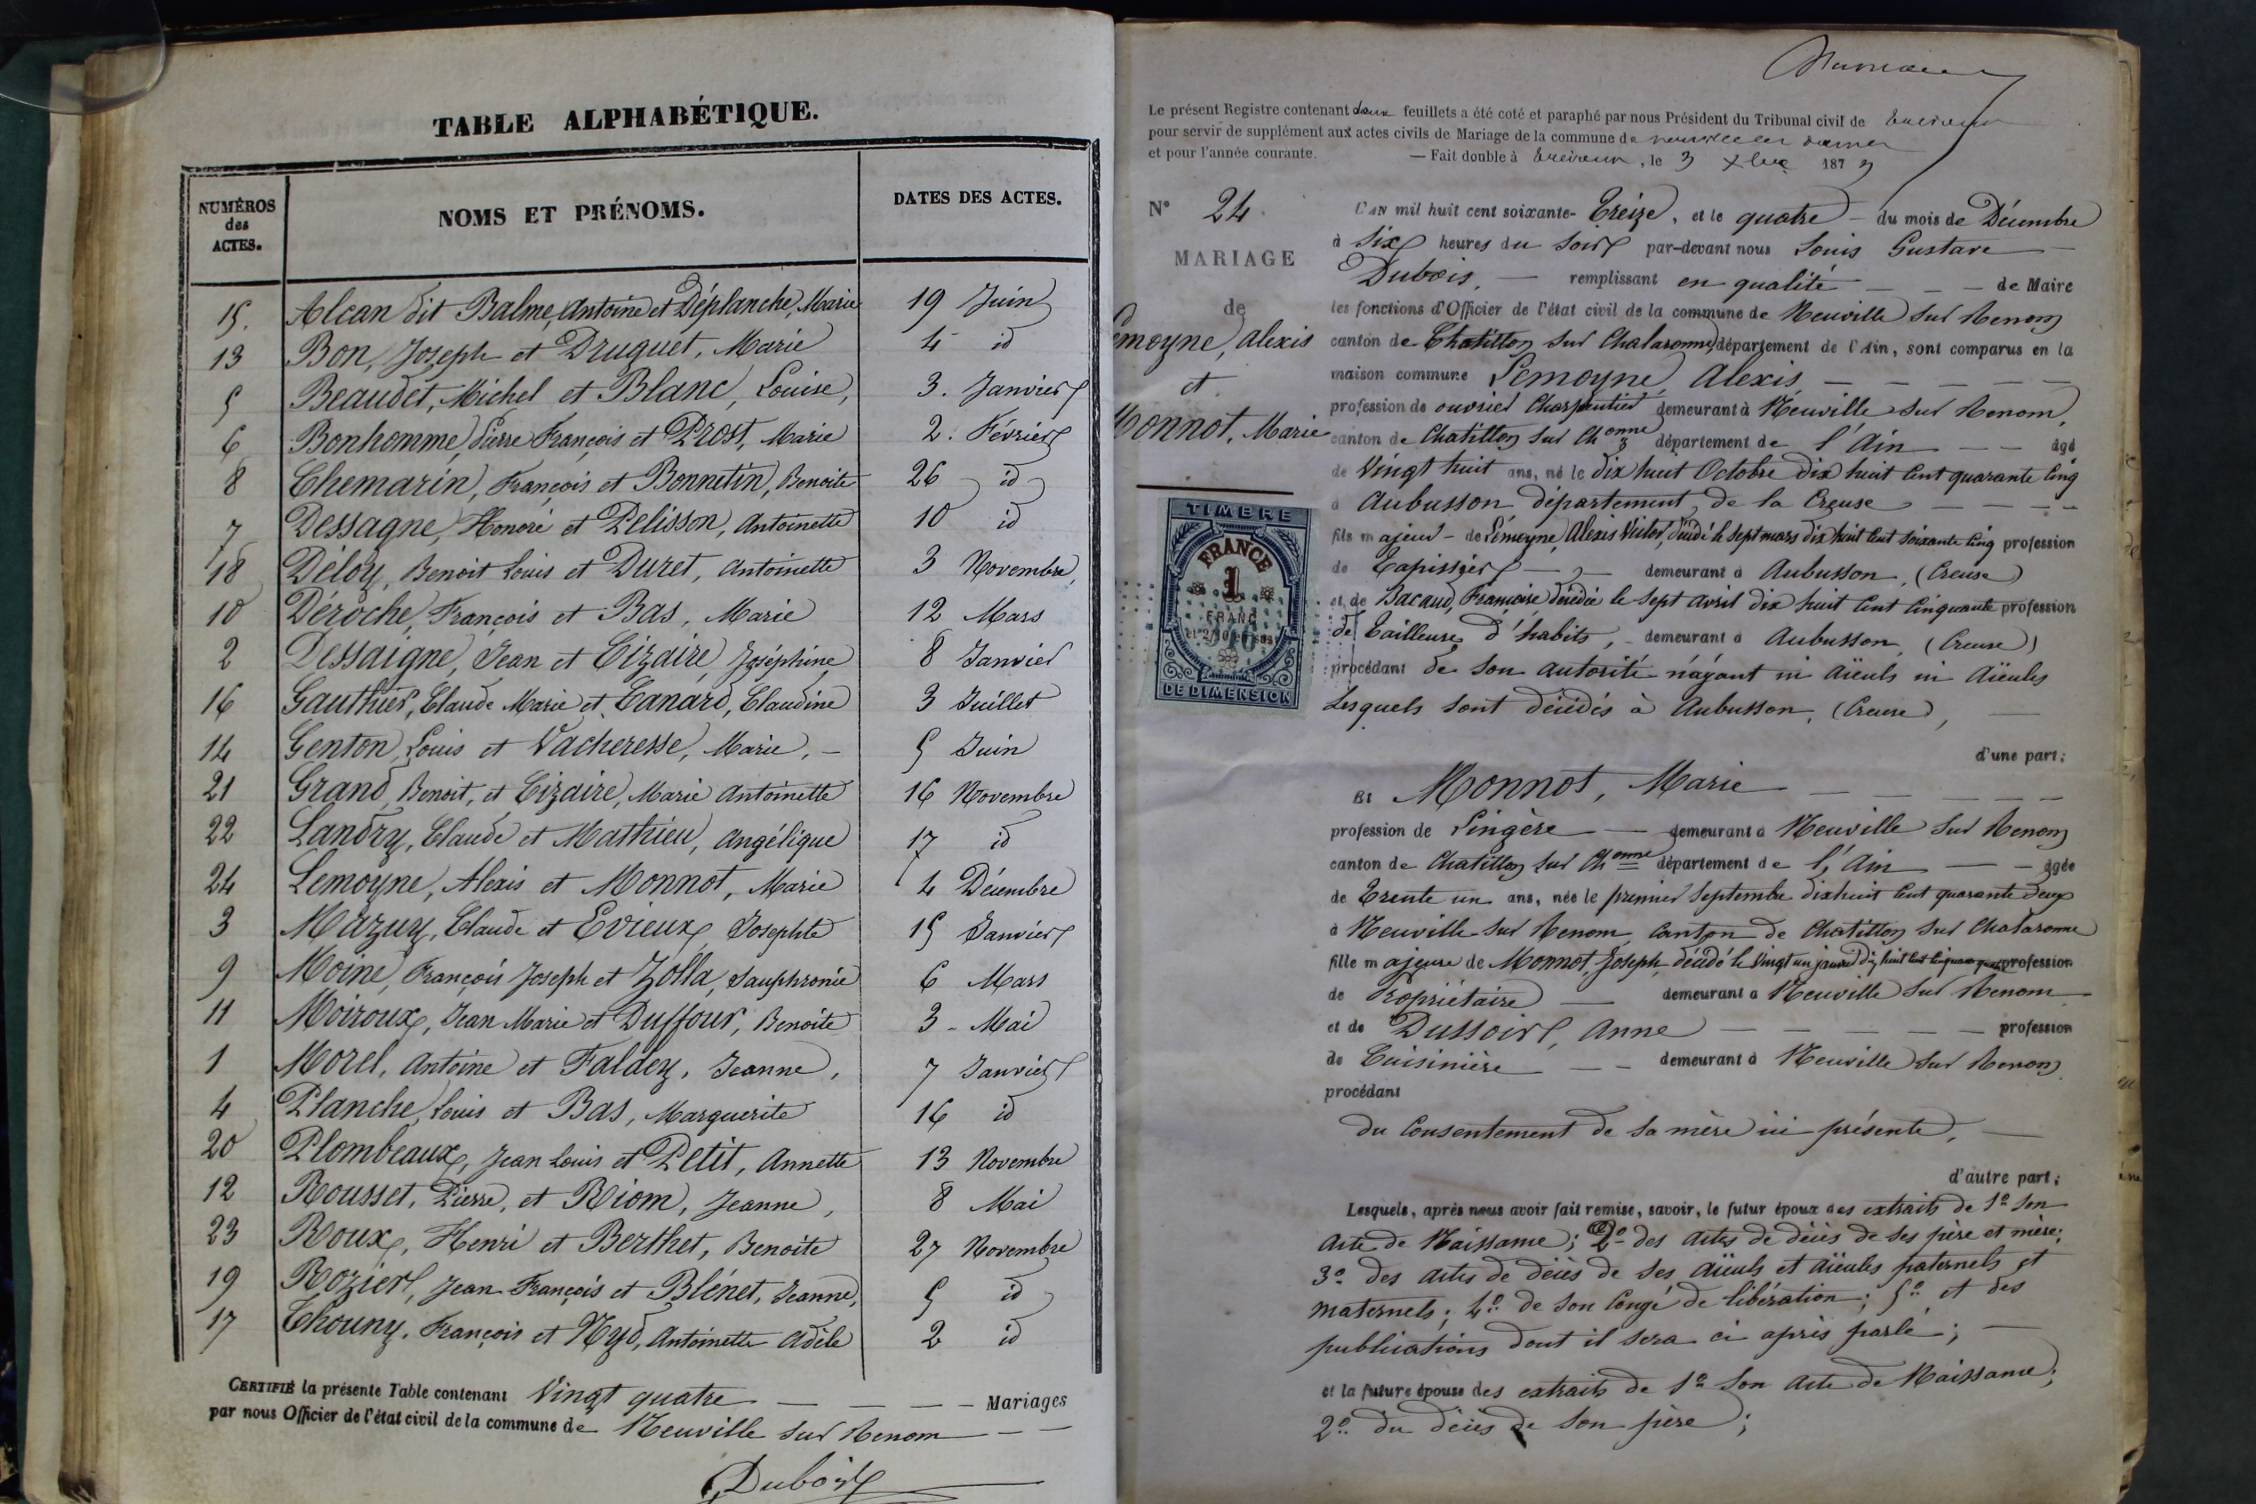 TABLE ALPHABÉTIQUE.
NUMÉROS des ACTES. NOMS ET PRÉNOMS. DATES DES ACTES.
15. Alcan dit Balme, Antoine et Déplanche, Marie 19 Juin
13 Bon, Joseph et Druguet, Marie 4 id
5 Beaudet, Michel et Blanc, Louise, 3. Janvier
6 Bonhomme, Pierre François et Prost, Marie 2. Février
8 Chemarin, François et Bonnetin, Benoite 26 id
7 Dessagne, Honoré et Pelisson, Antoinette 10 id
18 Déloy, Benoit Louis et Duret, Antoinette 3 Novembre,
10 Déroche, François et Bas, Marie 12 Mars
2 Dessaigne, Jean et Tizaire, Joséphine 8 Janvier
16 Gauthier, Claude Marie et Canard, Claudine 3 Juillet
14 Genton, Louis et Vacheresse, Marie, – 5 Juin
21 Grand, Benoit, et Tizaire, Marie Antoinette 16 Novembre
22 Landry, Claude et Mathieu, Angélique 17 id
24 Lemoyne, Alexis et Monnot, Marie 4 Décembre
3 Mazuy, Claude et Evieux, Josephte 15 Janvier
9 Moine, François Joseph et Zolla, Sauphronie 6 Mars
11 Moiroux, Jean Marie et Duffour, Benoite 3 - Mai
1 Morel, Antoine et Faldey, Jeanne, 7 Janvier
4 Planche, Louis et Bas, Marguerite 16 id
20 Plombeaux, Jean Louis et Petit, Annette 13 Novembre
12 Rousset, Pierre, et Riom, Jeanne, 8 Mai
23 Roux, Henri et Berthet, Benoite 27 Novembre
19 Rozier, Jean François et Blénet, Jeanne, 5 id
17 Thouny, François et Nyd, Antoinette Adèle 2 id
CERTIFIÉ la présente Table contenant Vingt quatre — — — — Mariages
par nous Officier de l'état civil de la commune de Neuville sur Renom — —
Dubois
Le présent Registre contenant deux feuillets a été coté et paraphé par nous Président du Tribunal civil de Trévoux
pour servir de supplément aux actes civils de Mariage de la commune de neuville les dames
et pour l'année courante. — Fait double à Trévoux, le 3 Xbre 1873
N° 24.
MARIAGE
de
Lemoyne, Alexis
et
Monnot, Marie
TIMBRE
FRANCE
1
FRANC
DE DIMENSION
L'AN mil huit cent soixante- Treize, et le quatre – du mois de Décembre
à Six heures du Soir par-devant nous Louis Gustave
Dubois. — remplissant en qualité — — — de Maire
les fonctions d'Officier de l'état civil de la commune de Neuville sur Renom
canton de Chatillon sur Chalaronne, département de l'Ain, sont comparus en la
maison commune Lemoyne, Alexis — — — — —
profession de ouvrier Charpentier demeurant à Neuville sur Renom,
canton de Chatillon sur Chonne département de l'Ain — — âgé
de Vingt huit ans, né le dix huit Octobre dix huit cent quarante cinq
à Aubusson département de la Creuse — — — —
fils majeur – de Lemoyne, Alexis Victor, décédé le sept mars dix huit cent soixante cinq profession
de Tapissier — demeurant à Aubusson, (Creuse)
et de Bacaud, Françoise décédée le sept avril dix huit cent cinquante profession
de Tailleuse d'habits, – demeurant à Aubusson, (Creuse)
procédant de son autorité n'ayant ni aïeuls ni aïeules
Lesquels sont décédés à Aubusson, (Creuse), —
d'une part;
Et Monnot, Marie — — — — — —
profession de Lingère — demeurant à Neuville sur Renom
canton de Chatillon sur Chonne département de l'Ain — — âgée
de Trente un ans, née le premier Septembre dix huit cent quarante deux
à Neuville sur Renom, canton de Chatillon sur Chalaronne
fille majeure de Monnot, Joseph, décédé le vingt un janvier dix huit cent profession
de Propriétaire — demeurant à Neuville sur Renom
et de Dussoir, Anne — — — — — profession
de Cuisinière — — demeurant à Neuville sur Renom
procédant
du Consentement de sa mère ici présente, —
d'autre part;
Lesquels, après nous avoir fait remise, savoir, le futur époux des extraits de 1° Son
acte de Naissance; 2° des actes de décès de ses père et mère;
3° des actes de décès de ses aïeuls et aïeules paternels et
maternels; 4° de son Congé de libération; 5° et des
publications dont il sera ci après parlé; —
et la future épouse des extraits de 1° Son acte de Naissance;
2° du décès de son père;